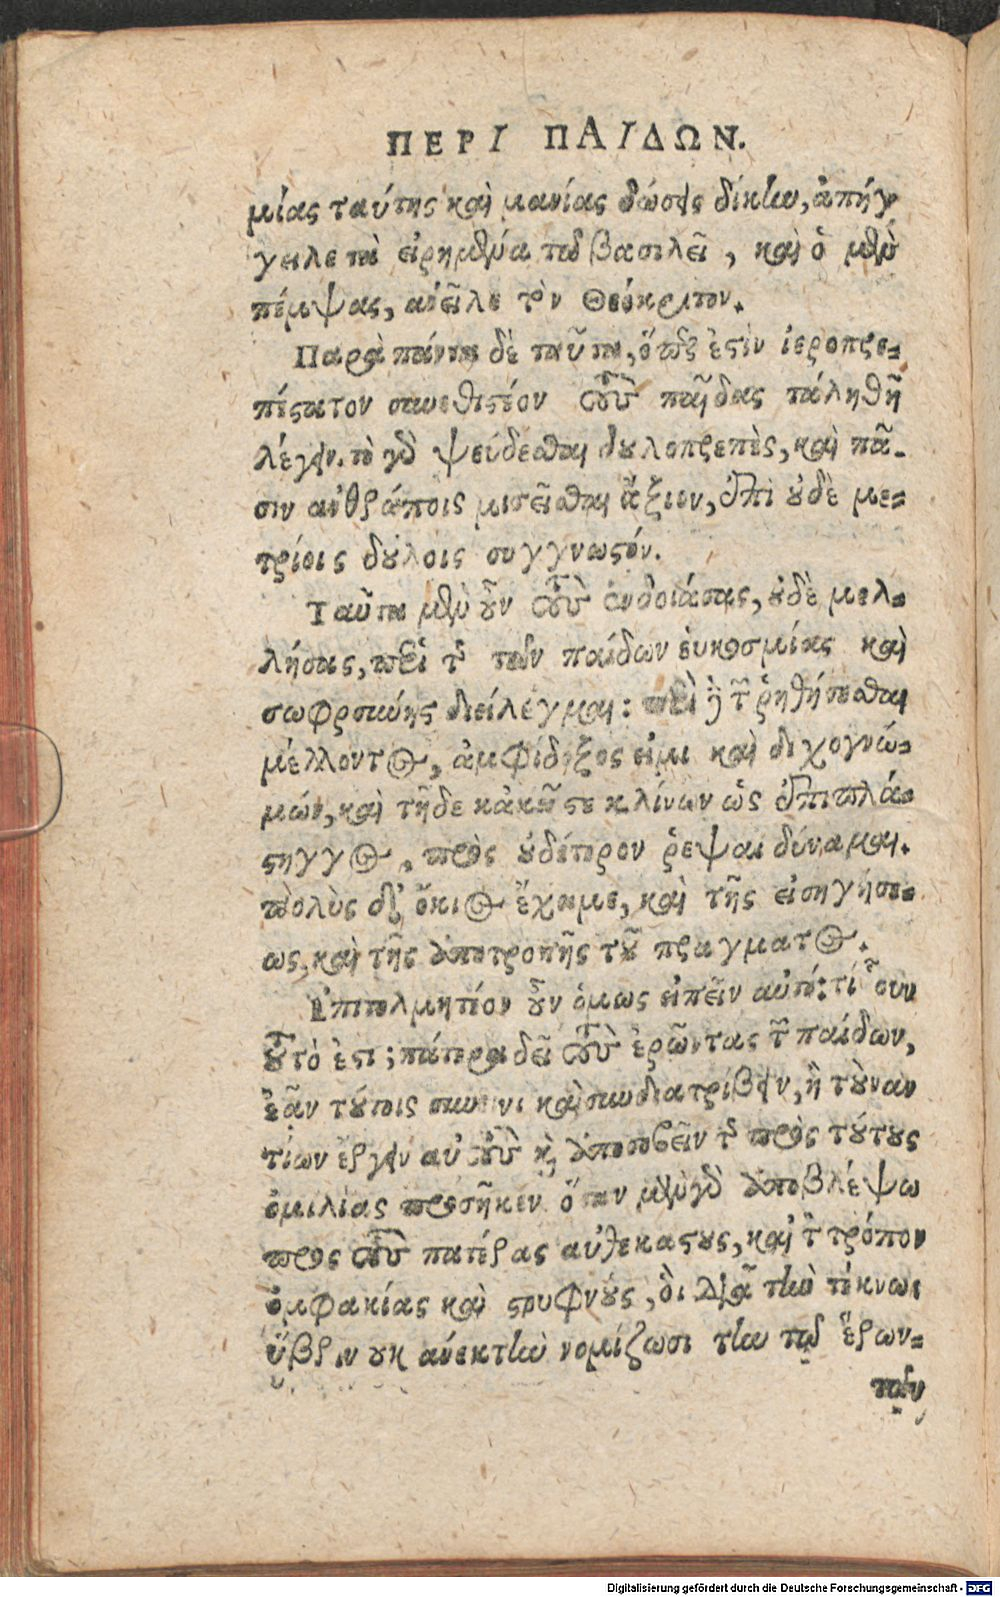 ΠΕΡΙ ΠΑΙΔΩΝ.
μίας ταύτης καὶ μανίας δώσεις δίκην, ἀπήγ
γειλε τὰ εἰρημένα τῷ βασιλεῖ, καὶ ὁ μὲν
πέμψας, ἀνεῖλε τὸν Θεόκριτον.
Παρὰ πάντα δὲ ταῦτα, ὅπερ ἐστὶν ἱεροπρε-
πέστατον συνεθιστέον τοὺς παῖδας τἀληθῆ
λέγειν. τὸ γὰρ ψεύδεσθαι δουλοπρεπὲς, καὶ πᾶ-
σιν ἀνθρώποις μισεῖσθαι ἄξιον, ἐπὶ οὐδὲ με-
τρίοις δούλοις συγγνωστόν.
Ταῦτα μὲν οὖν οὐκ ἐνδοιάσας, οὐδὲ μελ-
λήσας, περὶ τῆς τῶν παίδων εὐκοσμίας καὶ
σωφροσύνης διείλεγμαι: περὶ δὲ τοῦ ῥηθήσεσθαι
μέλλοντος, ἀμφίδοξος εἰμι καὶ διχογνώ-
μων, καὶ τῇδε κἀκεῖσε κλίνων ὡς ἐπὶ πλά-
στιγγος, πρὸς οὐδέτερον ῥεψαι δύναμαι.
πολὺς δὲ ὄκνος ἔχει με, καὶ τῆς εἰσηγήσε-
ως, καὶ τῆς ἀποτροπῆς τοῦ πραγματος.
Ἐπιτολμητέον οὖν ὁμως εἰπεῖν αὐτό: τί οὖν
τοῦτό ἐστι; πότερα δεῖ τοὺς ἐρῶντας τῶν παίδων,
ἐᾶν τούτοις συνεῖναι καὶ συνδιατρίβειν, ἢ τοὐναν
τίον εἴργειν αὐτοὺς καὶ ἀποσοβεῖν τῆς πρὸς τούτους
ὁμιλίας προσῆκεν ὅταν μὲν γὰρ ἀποβλέψω
προς τοὺς πατέρας αὐθεκαστους, καὶ τὸν τρόπον
ὀμφακίας καὶ στρυφνούς, ὃι διὰ τὴν τέκνων
ὕβριν ουκ ἀνεκτὴν νομίζωσι τὴν τῶν ἐρων-
των
Digitalisierung gefördert durch die Deutsche Forschungsgemeinschaft - DFG